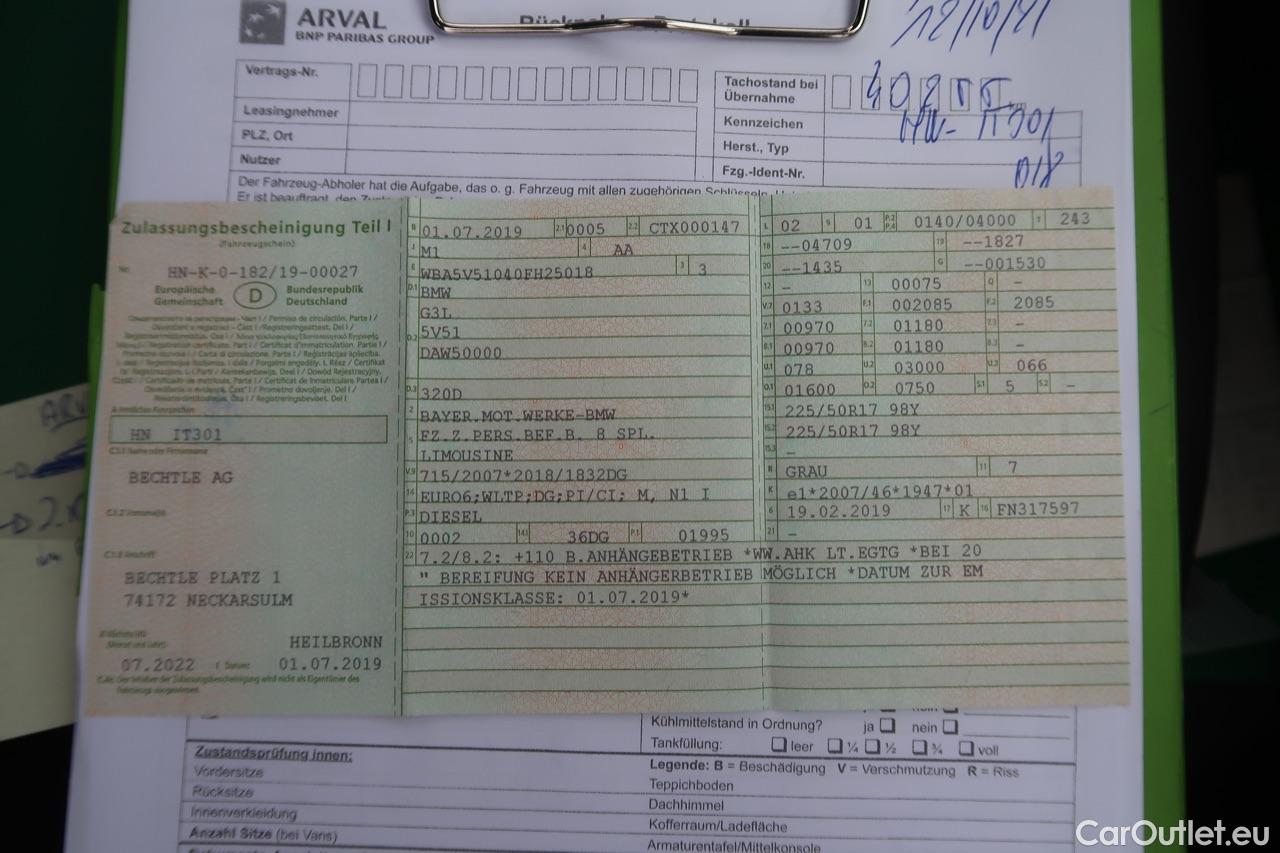 ARVAL
BNP PARIBAS GROUP
12/10/21
Vertrags-Nr.
Leasingnehmer
PLZ, Ort
Nutzer
Tachostand bei
Übernahme
Kennzeichen
HN- IT301
Herst., Typ
Fzg.-Ident-Nr.
018
Der Fahrzeug-Abholer hat die Aufgabe, das o. g. Fahrzeug mit allen zugehörigen
Zulassungsbescheinigung Teil I
(Fahrzeugschein)
Nr. HN-K-0-182/19-00027
Europäische Gemeinschaft D Bundesrepublik Deutschland
HN IT301
BECHTLE AG
BECHTLE PLATZ 1
74172 NECKARSULM
HEILBRONN
07.2022 01.07.2019
B 01.07.2019 2.1 0005 2.2 CTX000147
J M1 4 AA
E WBA5V51040FH25018 3 3
D.1 BMW
G3L
D.2 5V51
DAW50000
D.3 320D
2 BAYER.MOT.WERKE-BMW
5 FZ.Z.PERS.BEF.B. 8 SPL.
LIMOUSINE
V.9 715/2007*2018/1832DG
14 EURO6;WLTP;DG;PI/CI; M, N1 I
P.3 DIESEL
10 0002 14.1 36DG P.1 01995
L 02 9 01 P.2 P.4 0140/04000 T 243
18 --04709 19 --1827
20 --1435 G --001530
12 - 13 00075 Q -
V.7 0133 F.1 002085 F.2 2085
7.1 00970 7.2 01180 7.3 -
8.1 00970 8.2 01180 8.3 -
U.1 078 U.2 03000 U.3 066
O.1 01600 O.2 0750 S.1 5 S.2 -
15.1 225/50R17 98Y
15.2 225/50R17 98Y
15.3 -
R GRAU 11 7
K e1*2007/46*1947*01
6 19.02.2019 17 K 16 FN317597
21 -
22 7.2/8.2: +110 B.ANHÄNGEBETRIEB *WW.AHK LT.EGTG *BEI 20
" BEREIFUNG KEIN ANHÄNGERBETRIEB MÖGLICH *DATUM ZUR EM
ISSIONSKLASSE: 01.07.2019*
Kühlmittelstand in Ordnung? ja nein
Tankfüllung: leer ¼ ½ ¾ voll
Zustandsprüfung innen:
Legende: B = Beschädigung V = Verschmutzung R = Riss
Vordersitze
Teppichboden
Rücksitze
Dachhimmel
Innenverkleidung
Kofferraum/Ladefläche
Anzahl Sitze (bei Vans)
Armaturentafel/Mittelkonsole
CarOutlet.eu